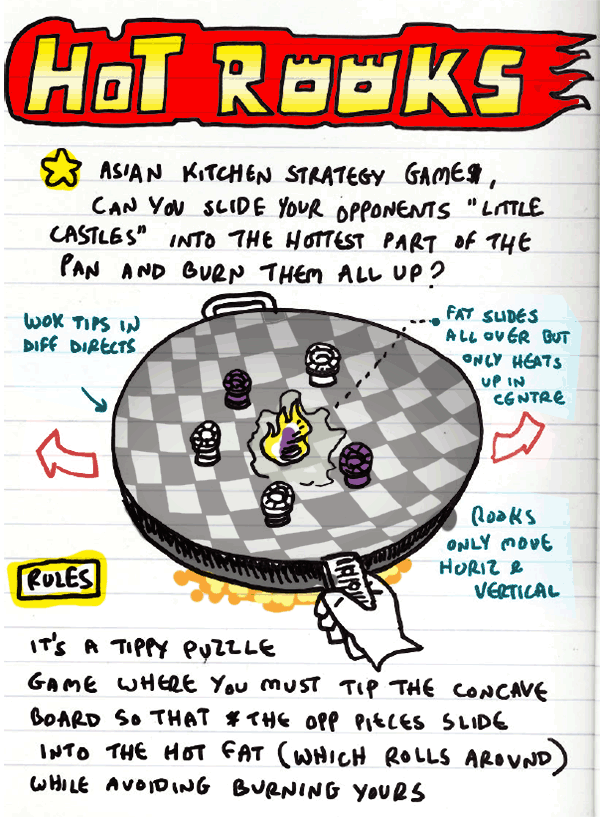 HOT ROOKS
ASIAN KITCHEN STRATEGY GAME,
CAN YOU SLIDE YOUR OPPONENTS "LITTLE
CASTLES" INTO THE HOTTEST PART OF THE
PAN AND BURN THEM ALL UP?
WOK TIPS IN
DIFF DIRECTS
FAT SLIDES
ALL OVER BUT
ONLY HEATS
UP IN
CENTRE
ROOKS
ONLY MOVE
HORIZ &
VERTICAL
RULES
IT'S A TIPPY PUZZLE
GAME WHERE YOU MUST TIP THE CONCAVE
BOARD SO THAT THE OPP PIECES SLIDE
INTO THE HOT FAT (WHICH ROLLS AROUND)
WHILE AVOIDING BURNING YOURS